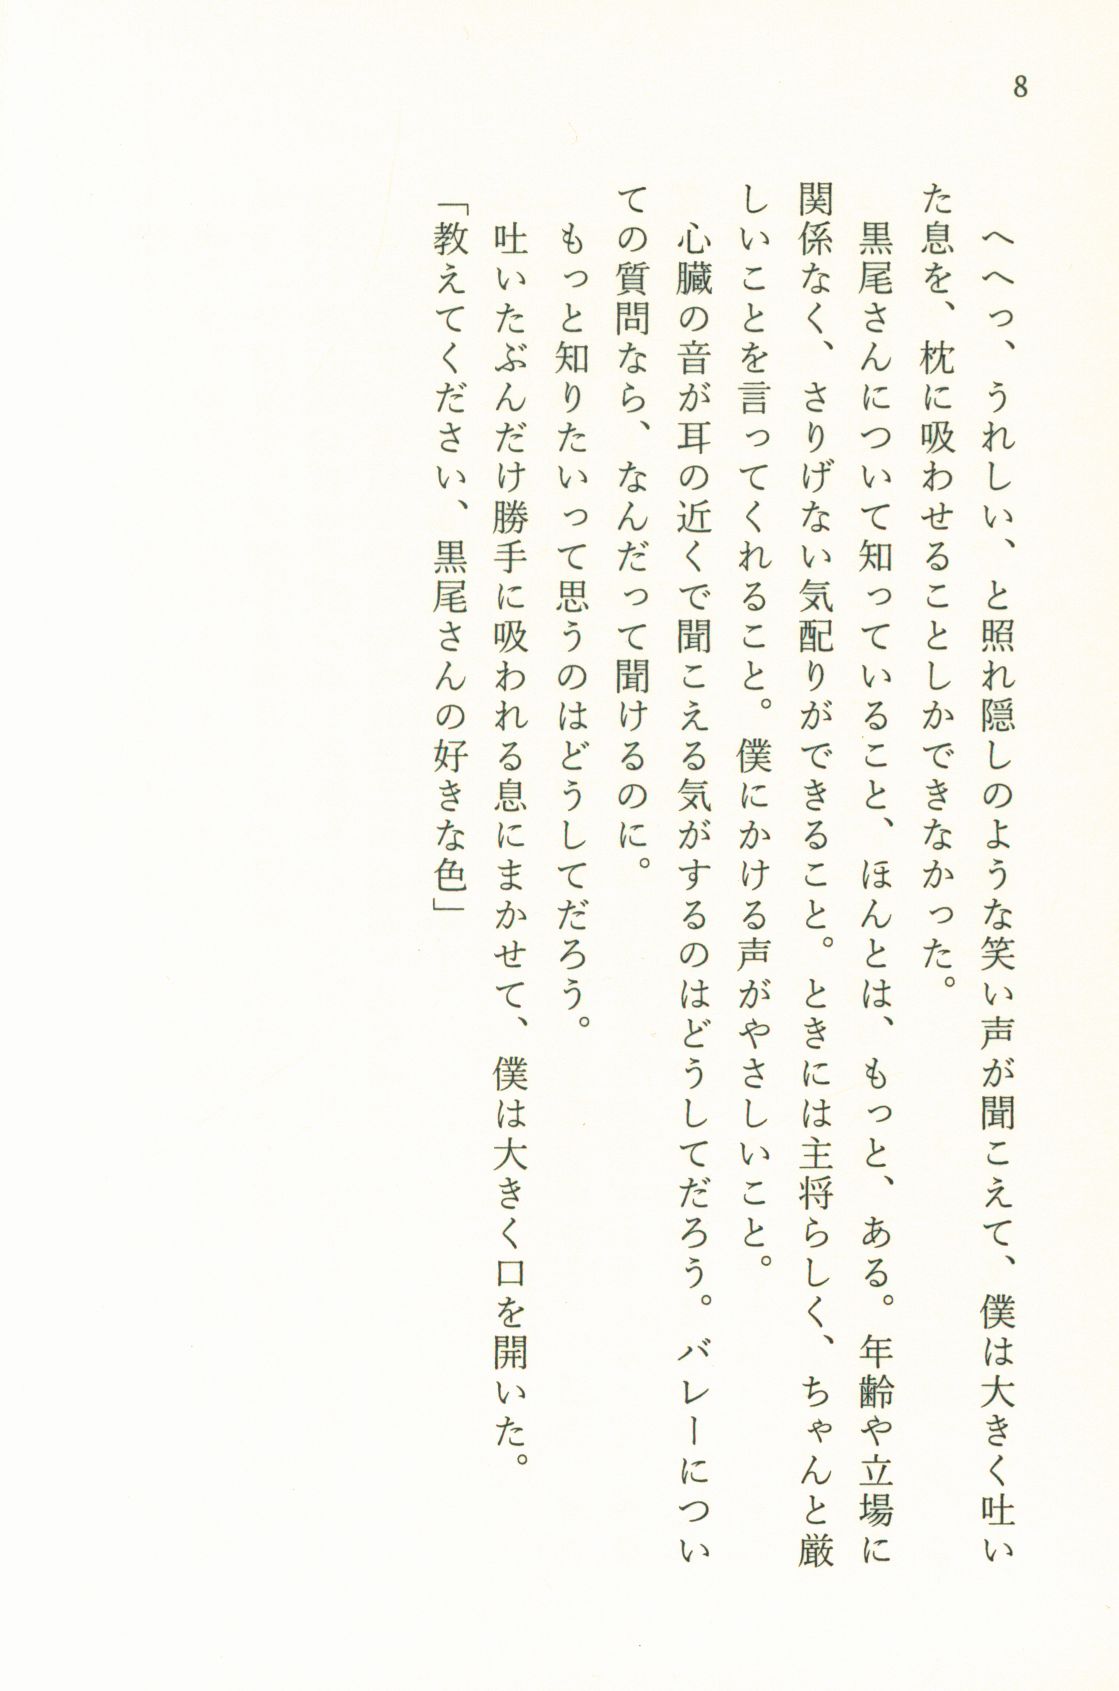 8
へへっ、うれしい、と照れ隠しのような笑い声が聞こえて、僕は大きく吐い
た息を、枕に吸わせることしかできなかった。
黒尾さんについて知っていること、ほんとは、もっと、ある。年齢や立場に
関係なく、さりげない気配りができること。ときには主将らしく、ちゃんと厳
しいことを言ってくれること。僕にかける声がやさしいこと。
心臓の音が耳の近くで聞こえる気がするのはどうしてだろう。バレーについ
ての質問なら、なんだって聞けるのに。
もっと知りたいって思うのはどうしてだろう。
吐いたぶんだけ勝手に吸われる息にまかせて、僕は大きく口を開いた。
「教えてください、黒尾さんの好きな色」